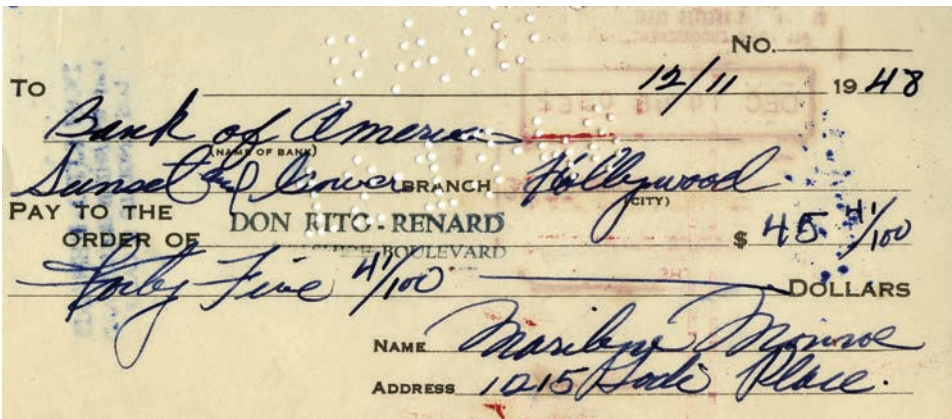 No.
To 12/11 1948
Bank of America
(NAME OF BANK)
Sunset and Gower BRANCH Hollywood
(CITY)
PAY TO THE
ORDER OF DON RITG-RENARD $ 45 41/100
BOULEVARD
Forty Five 41/100 DOLLARS
NAME Marilyn Monroe
ADDRESS 1215 Lodi Place.